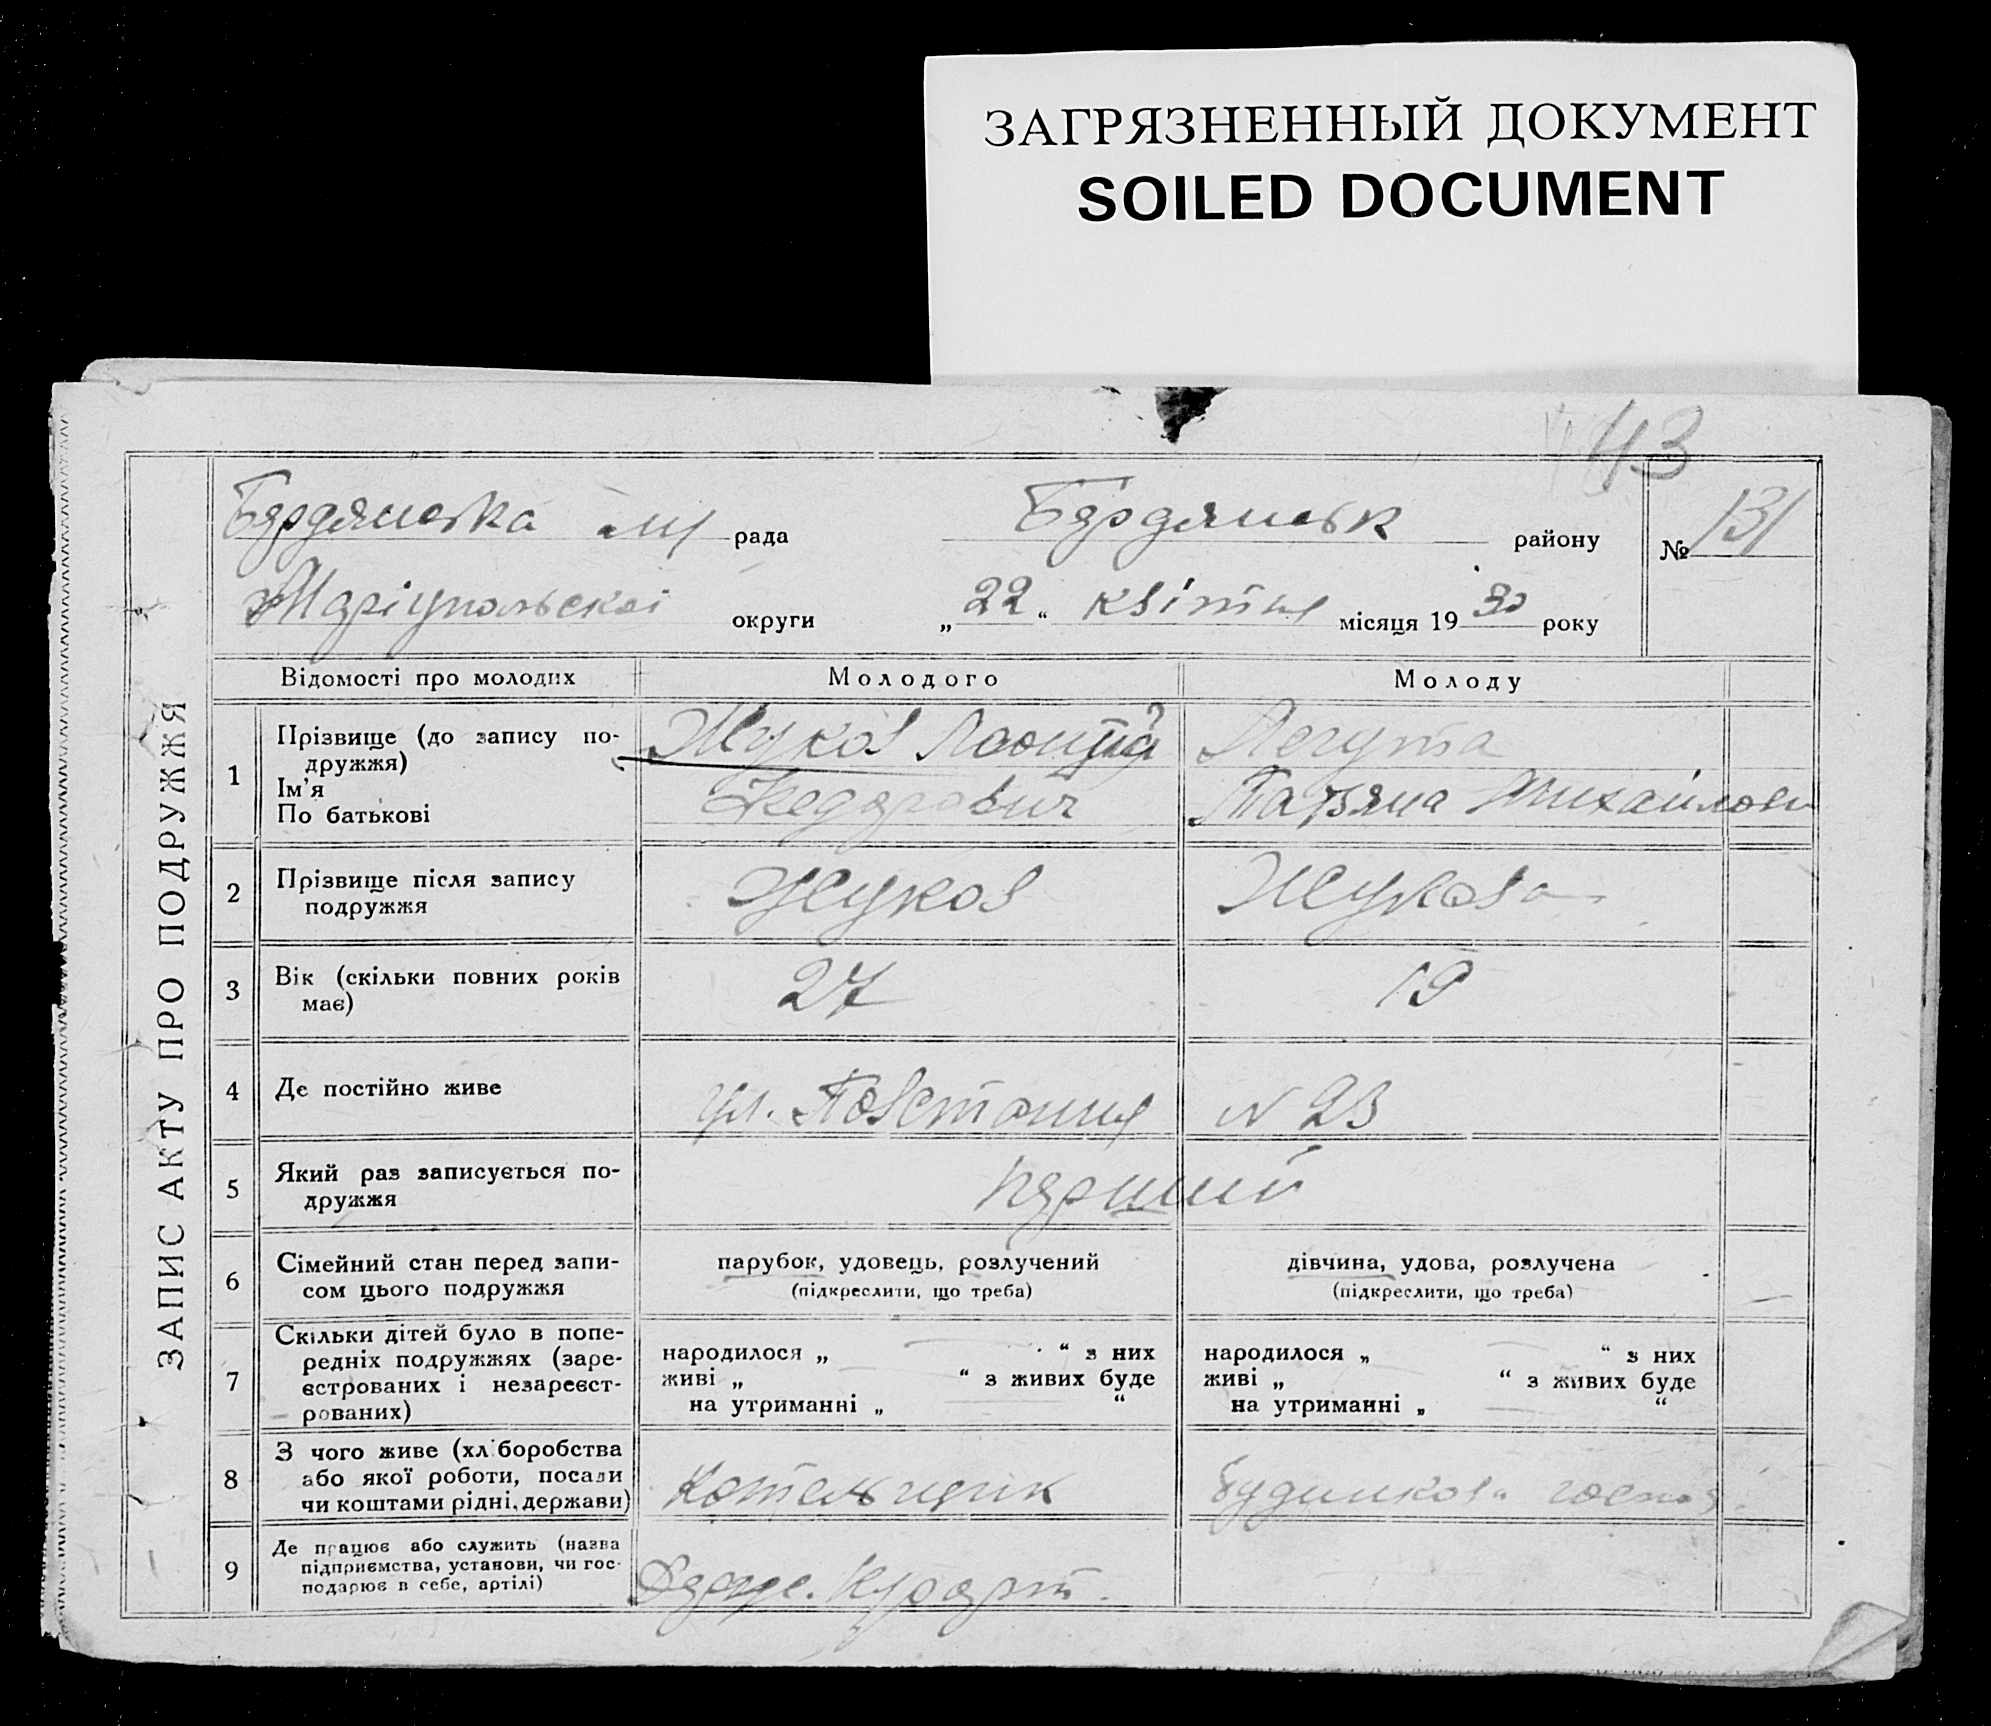 ЗАГРЯЗНЕННЫЙ ДОКУМЕНТ
SOILED DOCUMENT
43
Бердянська рада Бердянськ району № 131
Маріупольскої округи „22“ квітня місяця 1930 року
ЗАПИС АКТУ ПРО ПОДРУЖЖЯ
Відомості про молодих Молодого Молоду
1 Прізвище (до запису по-
дружжя)
Ім'я
По батькові
Жуков
Федорович
Легута
Татьяна Михайловн
2 Прізвище після запису
подружжя
Жуков Жукова
3 Вік (скільки повних років
має)
27 19
4 Де постійно живе ул. Повстання N 23
5 Який раз записується по-
дружжя
перший
6 Сімейний стан перед запи-
сом цього подружжя
парубок, удовець, розлучений
(підкреслити, що треба)
дівчина, удова, розлучена
(підкреслити, що треба)
7 Скільки дітей було в попе-
редніх подружжях (заре-
єстрованих і незареєст-
рованих)
народилося „ — “ з них
живі „ — “ з живих буде
на утриманні „ — “
народилося „ — “ з них
живі „ — “ з живих буде
на утриманні „ — “
8 З чого живе (хліборобства
або якої роботи, посади
чи коштами рідні, держави)
Котельщик
9 Де працює або служить (назва
підприємства, установи, чи гос-
подарює в себе, артілі)
Держ. Курорт.